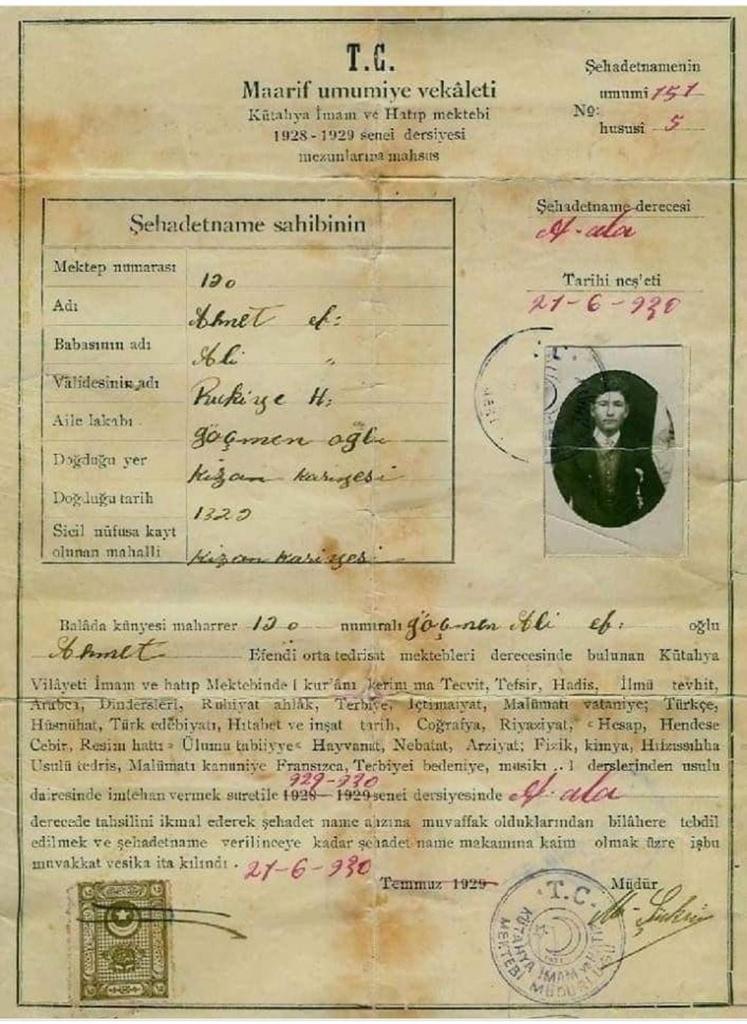 T.C.
Maarif umumiye vekâleti
Kütahya İmam ve Hatıp mektebi
1928-1929 senei dersiyesi
mezunlarına mahsus
Şehadetnamenin
umumî 151
No:
hususî 5
Şehadetname derecesi
A-ala
Tarihi neş'eti
21-6-930
Şehadetname sahibinin
Mektep numarası 120
Adı Ahmet ef:
Babasının adı Ali "
Vâlidesinin adı Rukiye H:
Aile lakabı göçmen oğlu
Doğduğu yer Kizan kariyesi
Doğduğu tarih 1320
Sicil nüfusa kayt
olunan mahalli Kizan kariyesi
Balâda künyesi maharrer 120 numıralı göçmen Ali ef: oğlu
Ahmet Efendi orta tedrisat mektebleri derecesinde bulunan Kütahya
Vilâyeti İmam ve hatıp Mektebinde kur'ânı kerim ma Tecvit, Tefsir, Hadis, İlmü tevhit,
Arabca, Dindersleri, Ruhiyat ahlâk, Terbiye, İçtimaiyat, Malûmatı vataniye; Türkçe,
Hüsnühat, Türk edebiyatı, Hıtabet ve inşat tarih, Coğrafya, Riyaziyat, « Hesap, Hendese
Cebir, Resim hattı » Ülumu tabiiyye « Hayvanat, Nebatat, Arziyat; Fizik, kimya, Hıfzıssıhha
Usulü tedris, Malûmatı kanuniye Fransızca, Terbiyei bedeniye, musiki derslerinden usulu
929-930
dairesinde imtehan vermek suretile 1928-1929 senei dersiyesinde A-ala
derecede tahsilini ikmal ederek şehadet name ahzına muvaffak olduklarından bilâhere tebdil
edilmek ve şehadetname verilinceye kadar şehadet name makamına kaim olmak üzre işbu
muvakkat vesika ita kılındı. 21-6-930
Temmuz 1929 Müdür
T.C.
KÜTAHYA İMAM VE HATİP
MEKTEBİ MÜDÜRLÜĞÜ